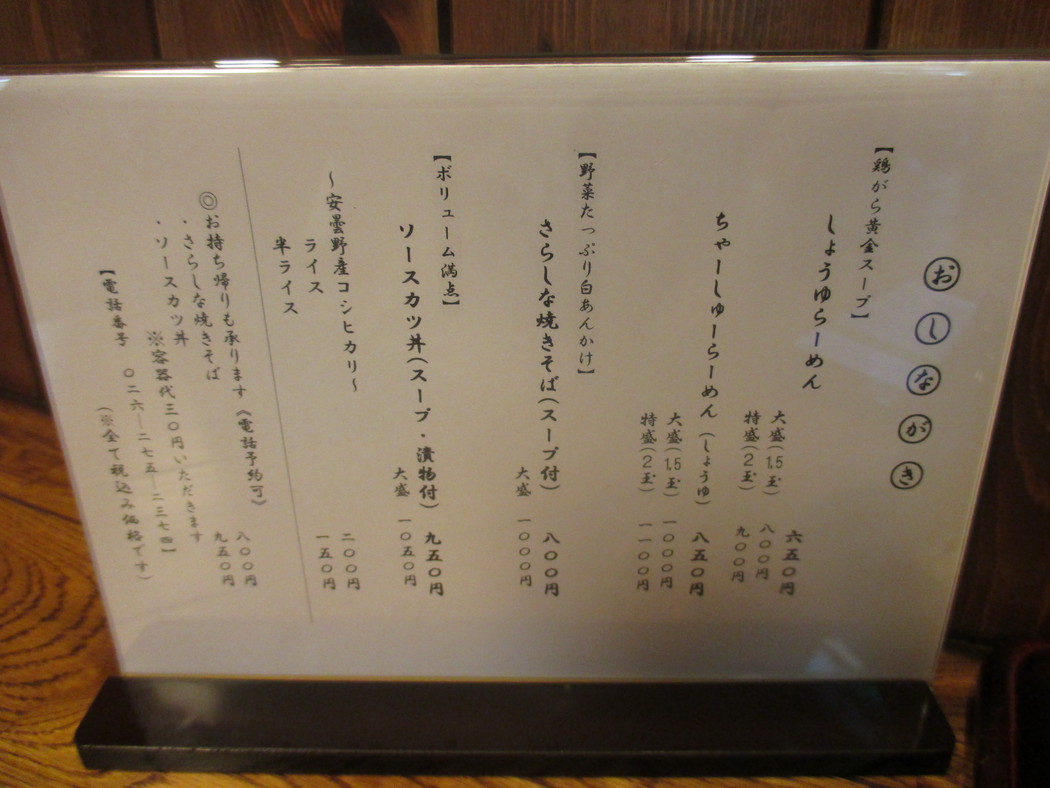 おしながき
【鶏がら黄金スープ】
しょうゆらーめん 六五〇円
大盛(1.5玉) 八〇〇円
特盛(2玉) 九〇〇円
ちゃーしゅーらーめん(しょうゆ) 八五〇円
大盛(1.5玉) 一〇〇〇円
特盛(2玉) 一一〇〇円
【野菜たっぷり白あんかけ】
さらしな焼きそば(スープ付) 八〇〇円
大盛 一〇〇〇円
【ボリューム満点】
ソースカツ丼(スープ・漬物付) 九五〇円
大盛 一〇五〇円
〜安曇野産コシヒカリ〜
ライス 二〇〇円
半ライス 一五〇円
◎お持ち帰りも承ります《電話予約可》
・さらしな焼きそば 八〇〇円
・ソースカツ丼 九五〇円
※容器代三〇円いただきます
【電話番号 〇二六―二七五―二三七四】
(※全て税込み価格です)